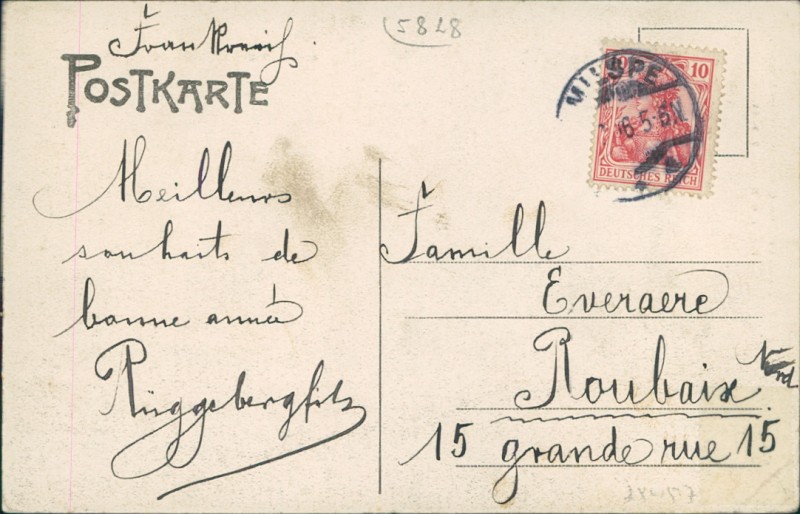 Frankreich
5828
POSTKARTE
10
MILSPE
6-5-6N
DEUTSCHES REICH
Meilleurs
souhaits de
bonne année
Rüggebergfritz
Famille
Everaere
Roubaix Nord
15 grande rue 15